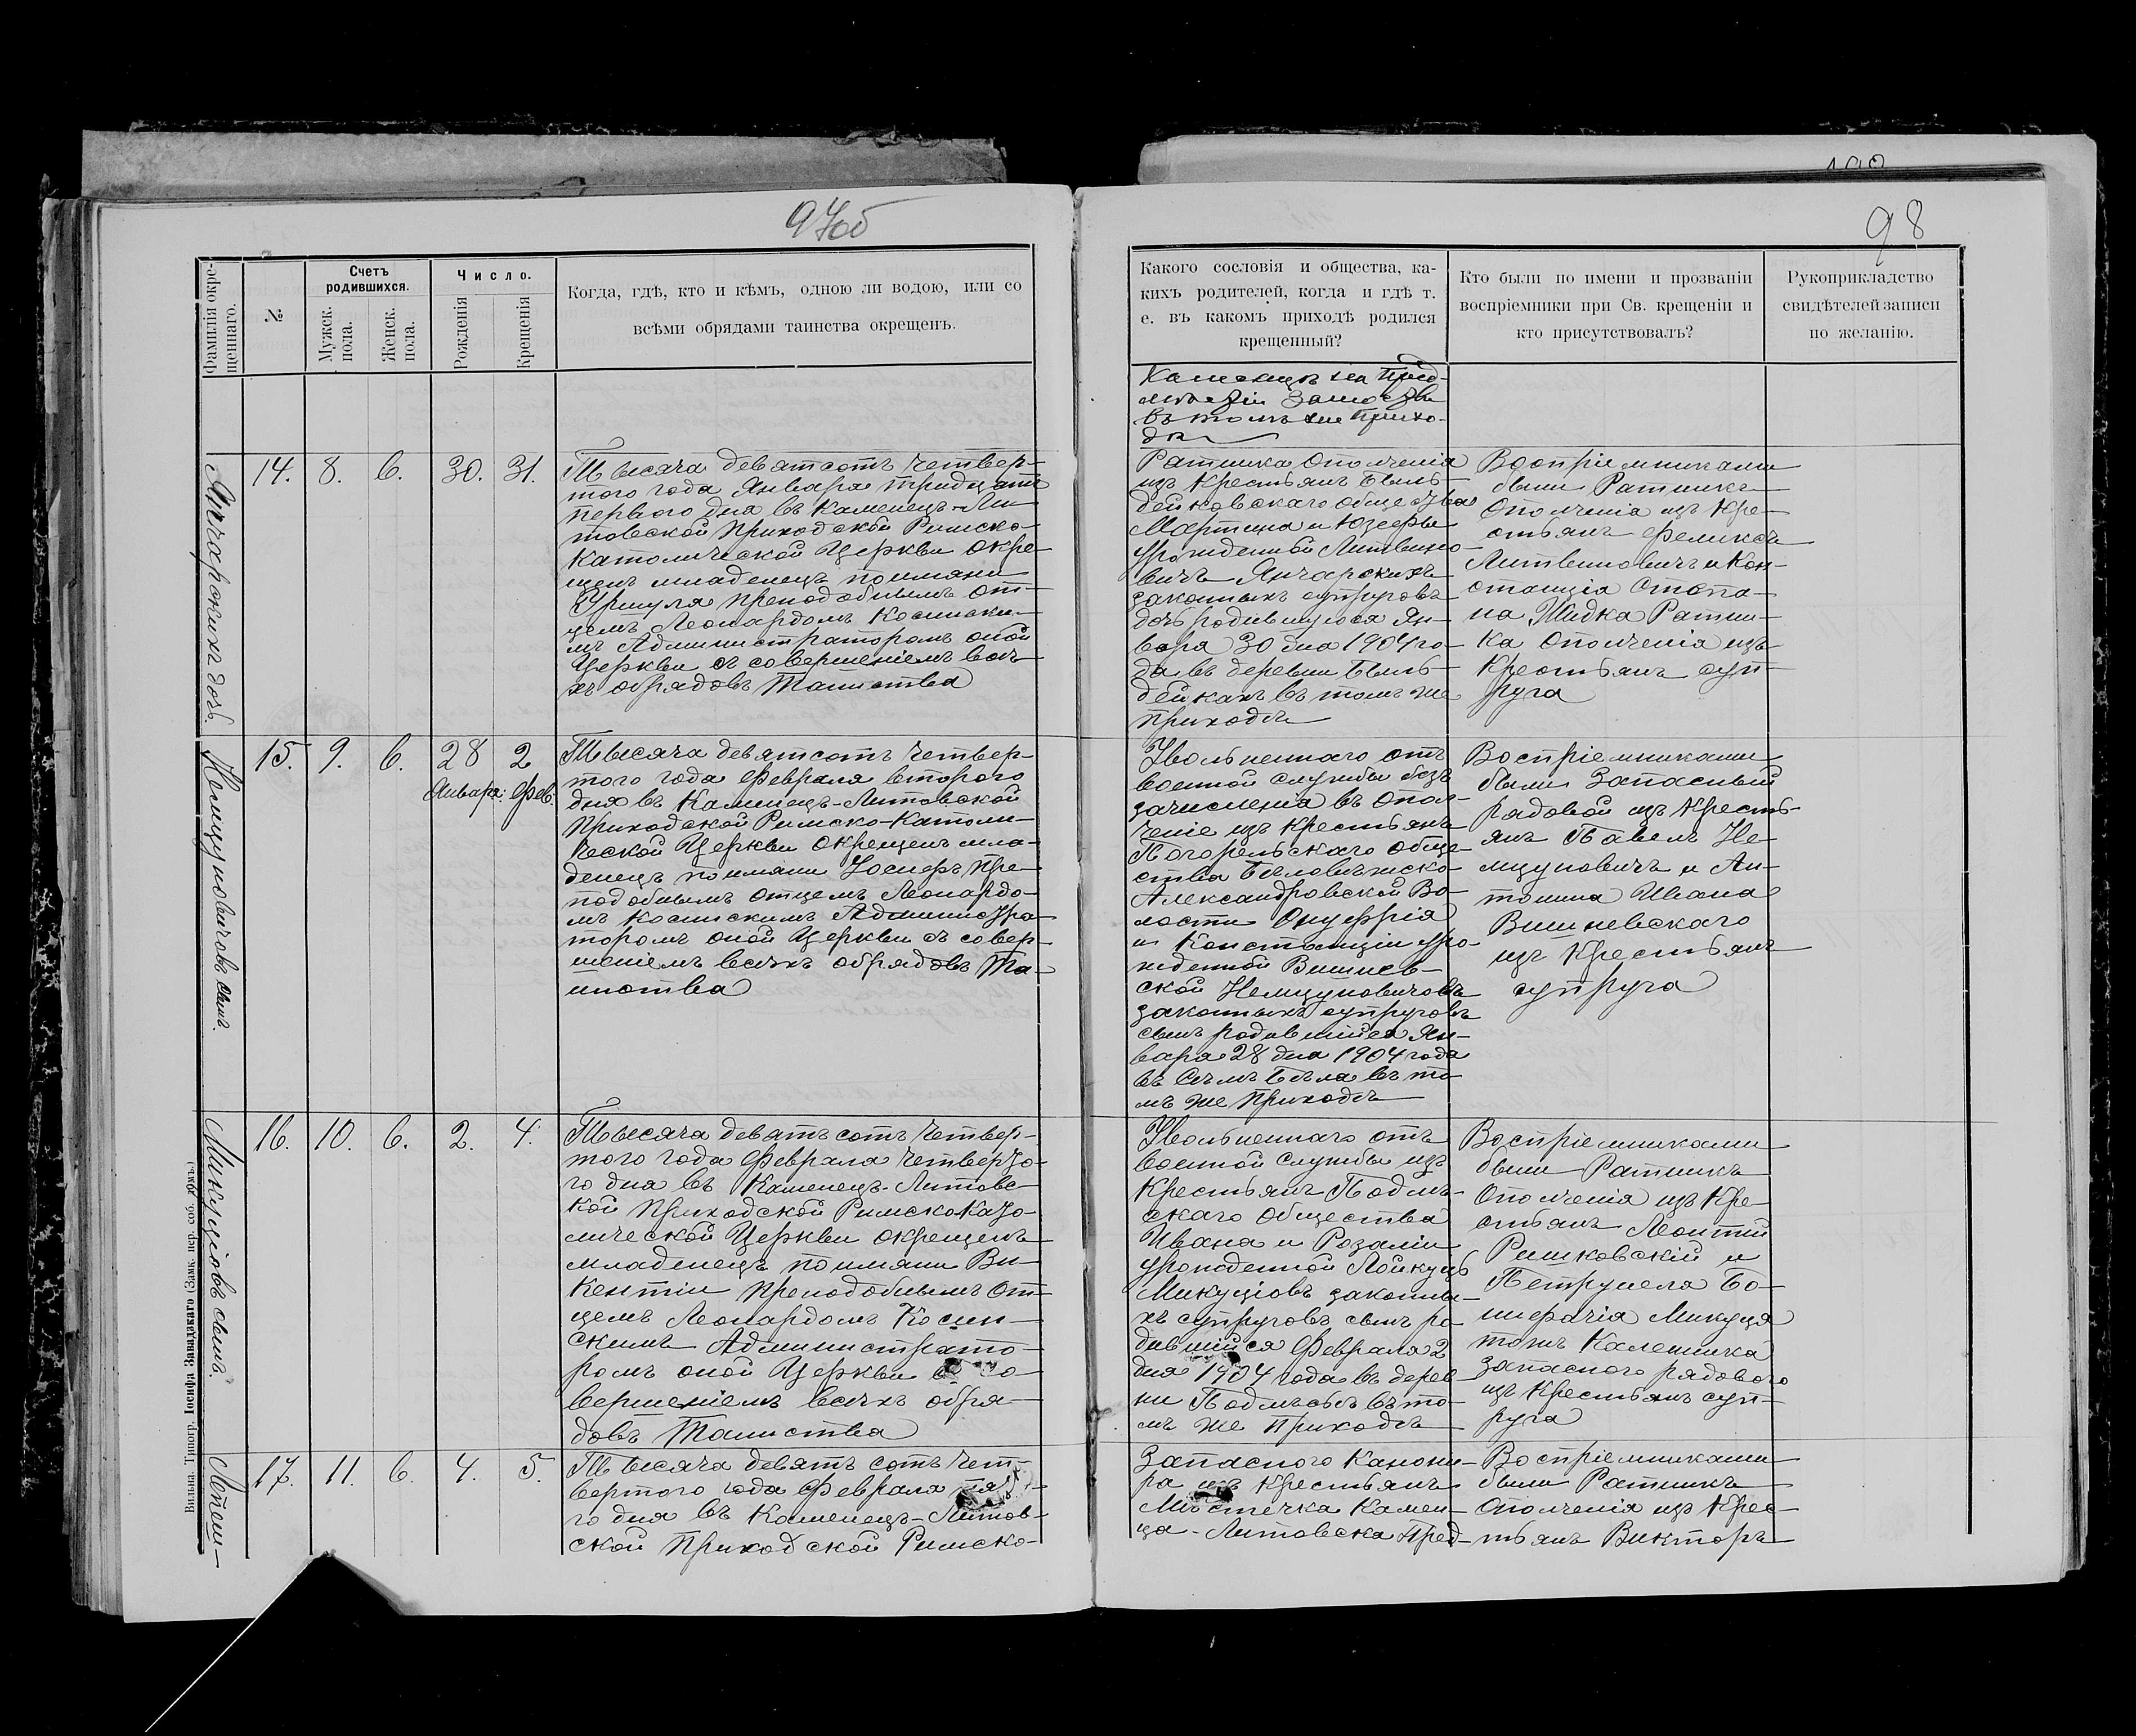 97об
98
Фамилія окре-
щеннаго.
№
Счетъ
родившихся.
Мужск.
пола.
Женск.
пола.
Число.
Рожденія
Крещенія
Когда, гдѣ, кто и кѣмъ, одною ли водою, или со
всѣми обрядами таинства окрещенъ.
Какого сословія и общества, ка-
кихъ родителей, когда и гдѣ т.
е. въ какомъ приходѣ родился
крещенный?
Кто были по имени и прозванію
воспріемники при Св. крещеніи и
кто присутствовалъ?
Рукоприкладство
свидѣтелей записи
по желанію.
Каменцѣ на пред-
мѣстіи Замосты
въ томъ же прихо-
дѣ
Янчарскихъ дочь.
14. 8. 6. 30. 31.
Тысяча девятсотъ четвер-
того года Января тридцать
перваго дня въ Каменецъ-Ли-
товской Приходской Римско-
Католической Церкви окре-
щенъ младенецъ по имяни
Уршуля преподобнымъ От-
цемъ Леонардомъ Косински-
мъ Администраторомъ оной
Церкви съ совершеніемъ всѣ-
хъ обрядовъ Таинства
Ратника Ополченія
изъ Крестьянъ Пыль-
дейковскаго общества
Мартина и Юзефы
урожденной Литвино-
вичъ Янчарскихъ
законныхъ супруговъ
дочь родившуюся Ян-
варя 30 дня 1904 го-
да въ деревни Пыль-
дейкахъ въ томъ же
приходѣ
Воспріемниками
были Ратникъ
Ополченія изъ Кре-
стьянъ Феликсъ
Литвиновичъ и Кон-
станція Степа-
на Шидка Ратни-
ка Ополченія изъ
Крестьянъ суп-
руга
Немцуновичовъ сынъ.
15. 9. 6. 28 2
Января. Фев.
Тысяча девятсотъ четвер-
того года Февраля второго
дня въ Каменецъ-Литовской
Приходской Римско-Католи-
ческой Церкви окрещенъ мла-
денецъ по имяни Іосифъ Пре-
подобнымъ отцемъ Леонардо-
мъ Косинскимъ Администра-
торомъ оной Церкви съ совер-
шеніемъ всѣхъ обрядовъ Та-
инства
Увольненнаго отъ
военной службы безъ
зачисленія въ опол-
ченіе изъ Крестьянъ
Погорельскаго обще-
ства Бѣловѣжско-
Александровской Во-
лости Онуфрія
и Констанціи уро-
жденной Вишнев-
ской Немцуновичовъ
законныхъ супруговъ
сынъ родившійся Ян-
варя 28 дня 1904 года
въ Селѣ Бѣла въ то-
мъ же Приходѣ
Воспріемниками
были Запасный
рядовой изъ Кресть-
янъ Павелъ Не-
мцуновичъ и Ан-
тонина Ивана
Вишневскаго
изъ Крестьянъ
супруга
Микуціовъ сынъ.
16. 10. 6. 2. 4.
Тысяча девять сотъ четвер-
того года Февраля четверто-
го дня въ Каменецъ-Литовс-
кой Приходской Римско Като-
лической Церкви окрещенъ
младенецъ по имяни Ви-
кентіи преподобнымъ От-
цемъ Леонардомъ Косин-
скимъ Администрато-
ромъ оной Церкви с со-
вершеніемъ всѣхъ обря-
довъ Таинства
Увольненнаго отъ
военной службы изъ
Крестьянъ Подлѣ-
скаго общества
Ивана и Розаліи
урожденной Лойкуцъ
Микуціовъ законны-
хъ супруговъ сынъ ро-
дившійся Февраля 2
дня 1904 года въ дерев-
ни Подлѣсьѣ въ то-
мъ же приходѣ
Воспріемниками
были Ратникъ
Ополченія изъ Кре-
стьянъ Леонтій
Рашковскій и
Петрунела Бо-
нифачія Микуця
запасного рядового
изъ Крестьянъ суп-
руга
17. 11. 6. 4. 5.
Тысяча девять сотъ чет-
вертого года Февраля пято-
го дня въ Каменецъ-Литов-
ской Приходской Римско-
Запасного Канони-
ра изъ Крестьянъ
Мѣстечка Камен-
ца-Литовска Пред-
Воспріемниками
были Ратникъ
Ополченія изъ Крес-
тьянъ Викторъ
Вильна. Типогр. Іосифа Завадзкаго (Замк. пер. соб. домъ.)